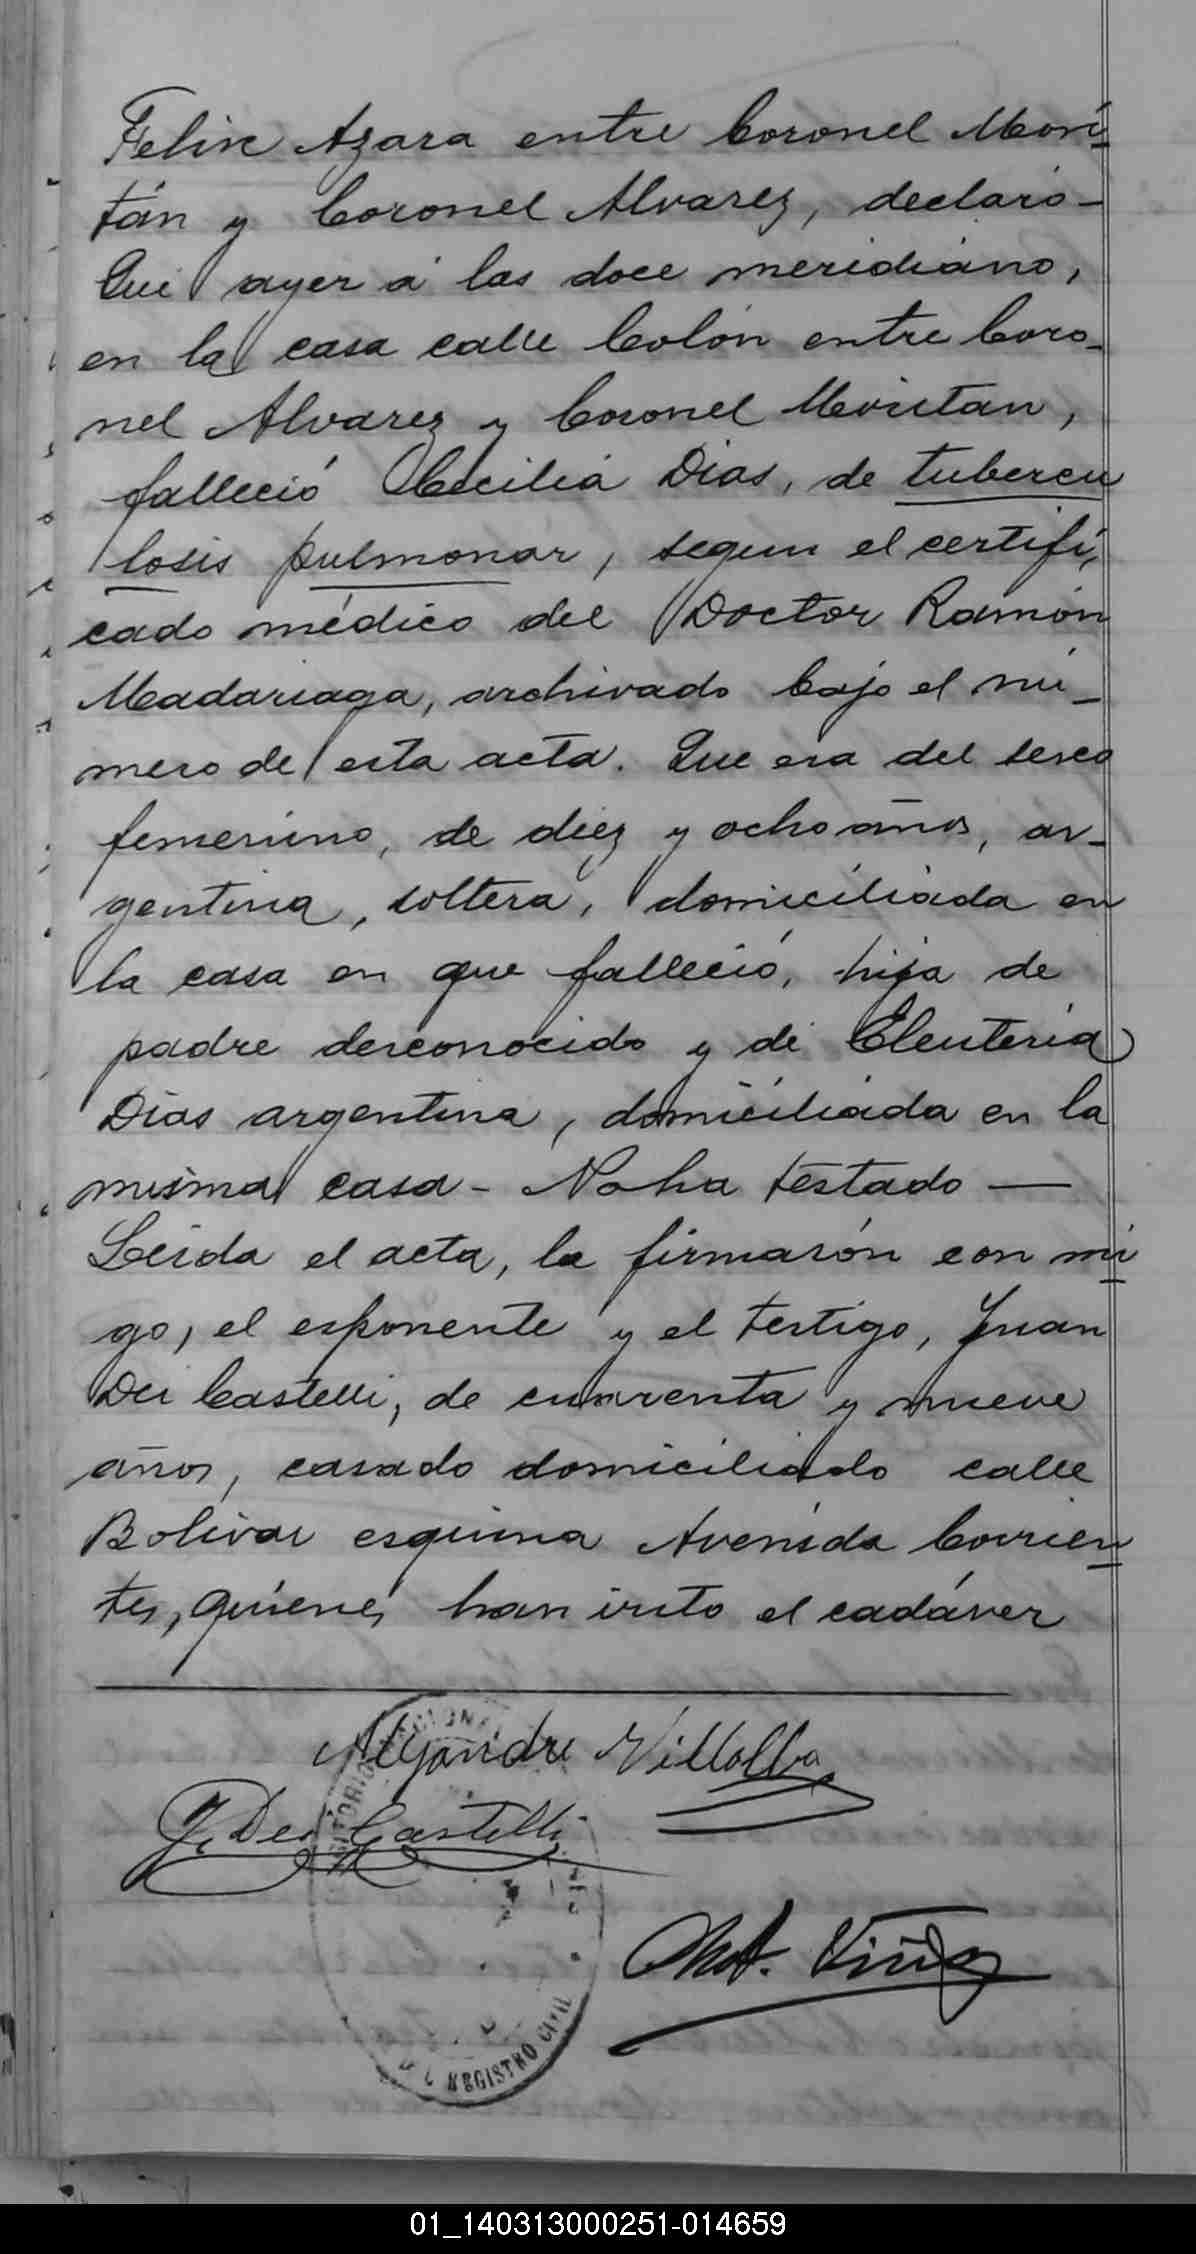 Felix Azara entre Coronel Mori-
tán y Coronel Alvarez, declaró-
Que ayer á las doce meridiano,
en la casa calle Colón entre Coro-
nel Alvarez y Coronel Moritan,
falleció Cecilia Dias, de tubercu
losis pulmonar, segun el certifi,
cado médico del Doctor Ramón
Madariaga, archivado bajo el nú-
mero de esta acta. Que era del sexo
femenino, de diez y ocho años, ar-
gentina, soltera, domiciliada en
la casa en que falleció, hija de
padre desconocido y de Eleuteria
Dias argentina, domiciliada en la
misma casa - No ha testado —
Leida el acta, la firmarón con mi
go, el esponente y el testigo, Juan
Dei Castelli, de cuarenta y nueve
años, casado domiciliado calle
Bolivar esquina Avenida Corrien
tes, quienes han visto el cadáver
Alejandro Villalba
J. Dei Castelli
REGISTRO CIVIL
01_140313000251-014659